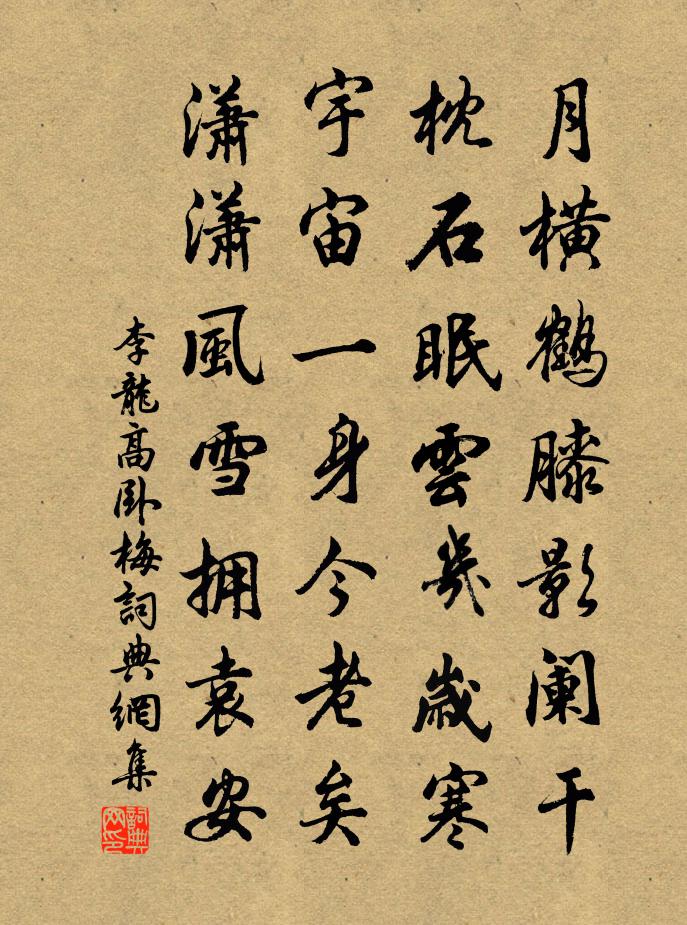 月横鹤膝影阑干
枕石眠雲幾歲寒
宇宙一身今老矣
瀟瀟風雪拥袁安
李龍高卧梅詞典網集
詞典网印